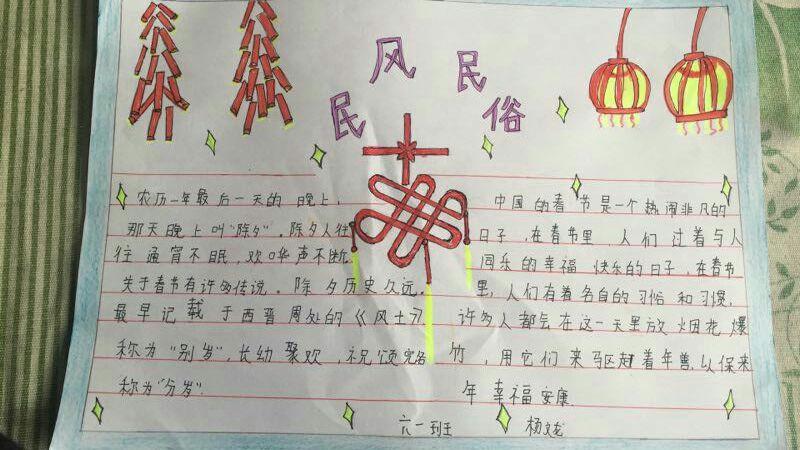 民风民俗
农历一年最后一天的晚上,
那天晚上叫“除夕”.除夕人往
往通宵不眠,欢哗声不断.
关于春节有许多传说.除夕历史久远,
最早记载于西晋周处的《风土
称为“别岁”,长幼聚欢,祝颂完备
称为“分岁”.
中国的春节是一个热闹非凡的
日子,在春节里人们过着与人
同乐的幸福快乐的日子,在春节
里,人们有着各自的习俗和习惯,
许多人都会在这一天里放烟花爆
竹,用它们来驱赶着年兽.以保来
年幸福安康.
六一班 杨文龙